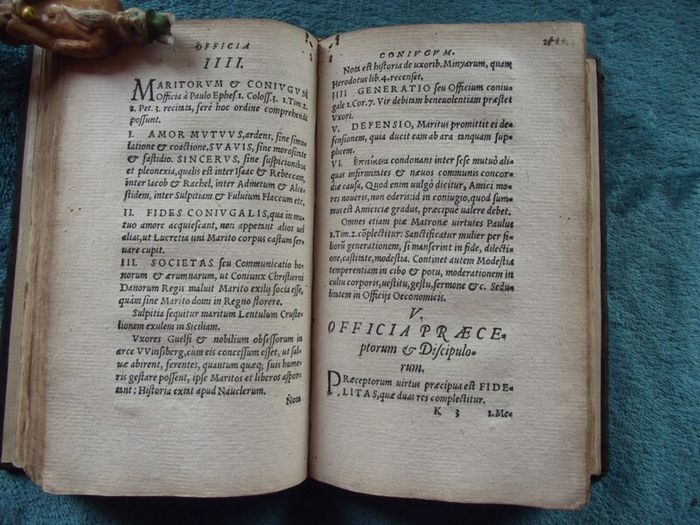 OFFICIA
IIII.
MARITORVM & CONIVGVM
Officia à Paulo Ephes. 5. Coloss. 3. 1. Tim. 2.
1. Pet. 3. recitata, ferè hoc ordine comprehendi
possunt.
I. AMOR MVTVVS, ardens, sine simu
latione & coactione. SVAVIS, sine morositate
& fastidio. SINCERVS, sine suspicionibus
et pleonexia, qualis est inter Isaac & Rebeccam,
inter Iacob & Rachel, inter Admetum & Alce-
stidem, inter Sulpitiam & Fuluium Flaccum etc.
II. FIDES CONIVGALIS, qua in mu-
tuo amore acquiescant, non appetant alios uel
alias, ut Lucretia uni Marito corpus castum ser-
uare cupit.
III. SOCIETAS seu Communicatio bo-
norum & ærumnarum, ut Coniunx Christierni
Danorum Regis maluit Marito exilij socia esse,
quàm sine Marito domi in Regno florere.
Sulpitia sequitur maritum Lentulum Crustel
lionem exulem in Siciliam.
Vxores Guelfi & nobilium obsessorum in
arce VVinsberg, cum eis concessum esset, ut sal-
uæ abirent, ferentes, quantum quæq; suis hume
ris gestare possent, ipsæ Maritos et liberos aspor
tant: Historia extat apud Nauclerum.
Nota
CONIVGVM.
Nota est historia de uxorib. Minyarum, quam
Herodotus lib. 4. recenset.
IIII GENERATIO seu Officium coniu-
gale 1. Cor. 7. Vir debitam beneuolentiam præstet
Vxori.
V. DEFENSIO, Maritus promittit ei de-
fensionem, quia ducit eam ab ara tanquam sup-
plicem.
VI. Ἐπιείκεια condonans inter sese mutuò ali-
quas infirmitates & næuos communis concor-
diæ causa, Quod enim uulgò dicitur, Amici mo-
res noueris, non oderis: id in coniugio, quod sum-
mus est Amiciciæ gradus, præcipuè ualere debet.
Omnes etiam piæ Matronæ uirtutes Paulus
1. Tim. 2. cõplectitur: Sanctificatur mulier per fi-
liorũ generationem, si manserint in fide, dilectio
ne, castitate, modestia. Continet autem Modestia
temperentiam in cibo & potu, moderationem in
cultu corporis, uestitu, gestu, sermone & c. Sedu-
litatem in Officijs Oeconomicis.
V.
OFFICIA PRÆCE-
ptorum & Discipulo-
rum.
PRæceptorum uirtus præcipua est FIDE
LITAS, quæ duas res complectitur.
K 3 1. Me-